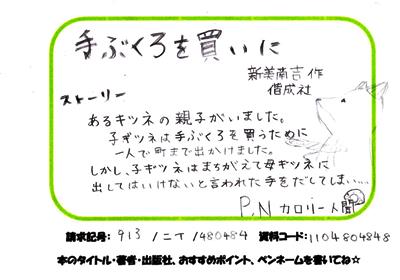 手ぶくろを買いに
新美南吉 作
偕成社
ストーリー
あるキツネの親子がいました。
子ギツネは手ぶくろを買うために
一人で町まで出かけました。
しかし、子ギツネはまちがえて母ギツネに
出してはいけないと言われた手をだしてしまい....
P.N カロリー人間
請求記号: 913 /ニイ /480484 資料コード: 1104804848
本のタイトル・著者・出版社、おすすめポイント、ペンネームを書いてね☆